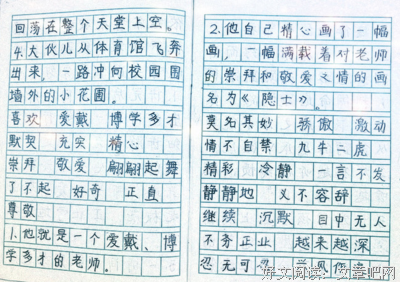 回荡在整个天堂上空。
4.大伙儿从体育馆飞奔
出来，一路冲向校园围
墙外的小花圃。
喜欢 爱戴 博学多才
默契 充实 精心
崇拜 敬爱 翩翩起舞
了不起 好奇 正直
尊敬
1.他就是一个爱戴、博
学多才的老师。
2.他自己精心画了一幅
画，一幅满载着对老师
的崇拜和敬爱之情的画
名为《隐士》。
莫名其妙 骄傲 激动
情不自禁 九牛二虎
精彩 冷静 一言不发
静静地 义不容辞
继续 沉默 目中无人
不务正业 越来越深
忍无可忍
好文阅读：文章吧网